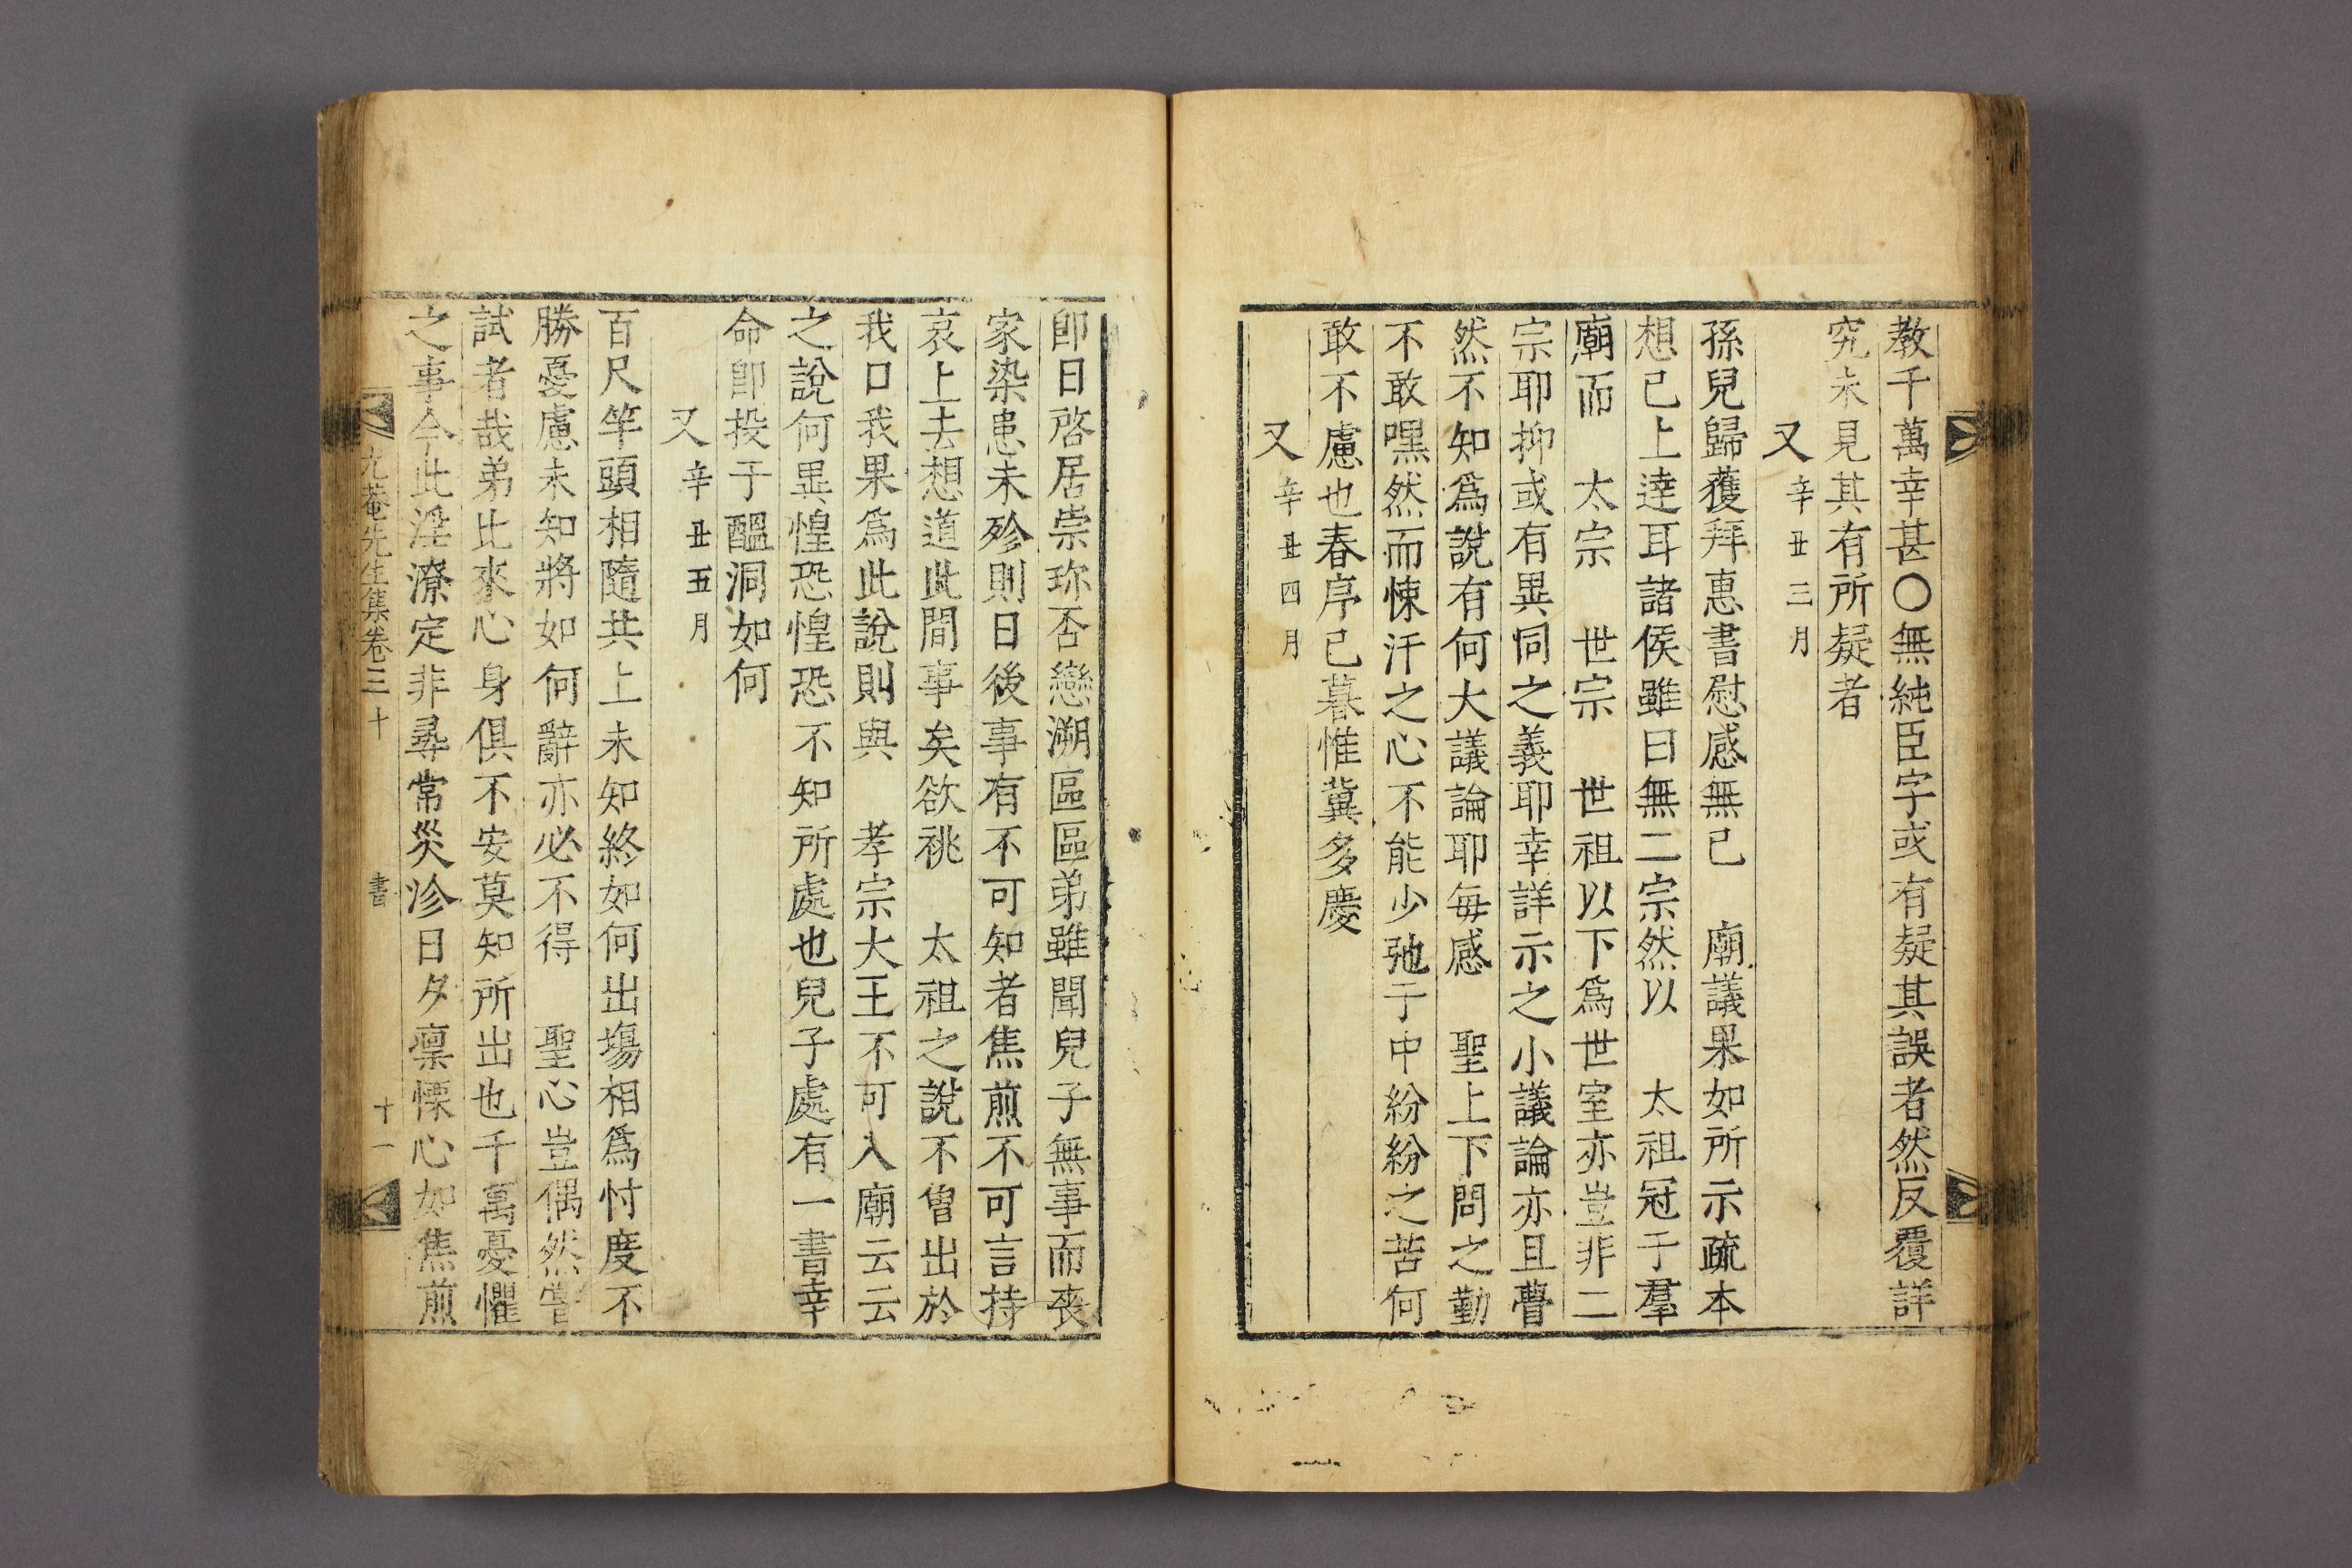 教千萬幸甚○無純臣字或有疑其誤者然反覆詳
究未見其有所疑者
又辛丑三月
孫兒歸獲拜惠書慰感無已 廟議果如所示疏本
想已上達耳諸侯雖曰無二宗然以 太祖冠于羣
廟而 太宗 世宗 世祖以下爲世室亦豈非二
宗耶抑或有異同之義耶幸詳示之小議論亦且瞢
然不知爲說有何大議論耶每感 聖上下問之勤
不敢嘿然而悚汗之心不能少弛于中紛紛之苦何
敢不慮也春序已暮惟冀多慶
又辛丑四月
卽日啓居崇珎否戀溯區區弟雖聞兒子無事而喪
家染患未殄則日後事有不可知者焦煎不可言持
哀上去想道此間事矣欲祧 太祖之說不曾出於
我口我果爲此說則與 孝宗大王不可入廟云云
之說何異惶恐惶恐不知所處也兒子處有一書幸
命卽投于醞洞如何
又辛丑五月
百尺竿頭相隨共上未知終如何出塲相爲忖度不
勝憂慮未知將如何辭亦必不得 聖心豈偶然嘗
試者哉弟比來心身俱不安莫知所出也千萬憂懼
之事今此淫潦定非尋常災沴日夕凛慄心如焦煎
尤菴先生集卷三十 書 十一